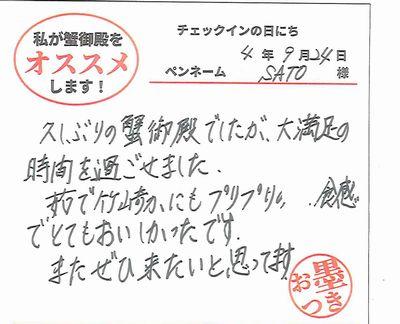 私が蟹御殿を
オススメ
します!
チェックインの日にち
4 年 9 月 24 日
ペンネーム SATO 様
久しぶりの蟹御殿でしたが、大満足の
時間を過ごせました.
で竹崎かにもプリプリ 食感
でとてもおいしかったです.
またぜひ来たいと思ってます
お墨つき